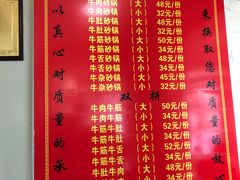 以真心对质量的承
牛肉砂锅（大）48元/份
牛肉砂锅（小）32元/份
牛肚砂锅（大）48元/份
牛肚砂锅（小）32元/份
牛筋砂锅（大）52元/份
牛筋砂锅（小）34元/份
牛舌砂锅（大）51元/份
牛舌砂锅（小）34元/份
牛杂砂锅（大）45元/份
牛杂砂锅（小）32元/份
双拼
牛肉牛筋（大）50元/份
牛肉牛筋（小）34元/份
牛筋牛肚（大）50元/份
牛筋牛肚（小）34元/份
牛筋牛舌（大）52元/份
牛筋牛舌（小）34元/份
牛舌牛肉（大）50元/份
牛舌牛肉（小）34元/份
牛舌牛肚
34元/份
来换取您对质量的放心